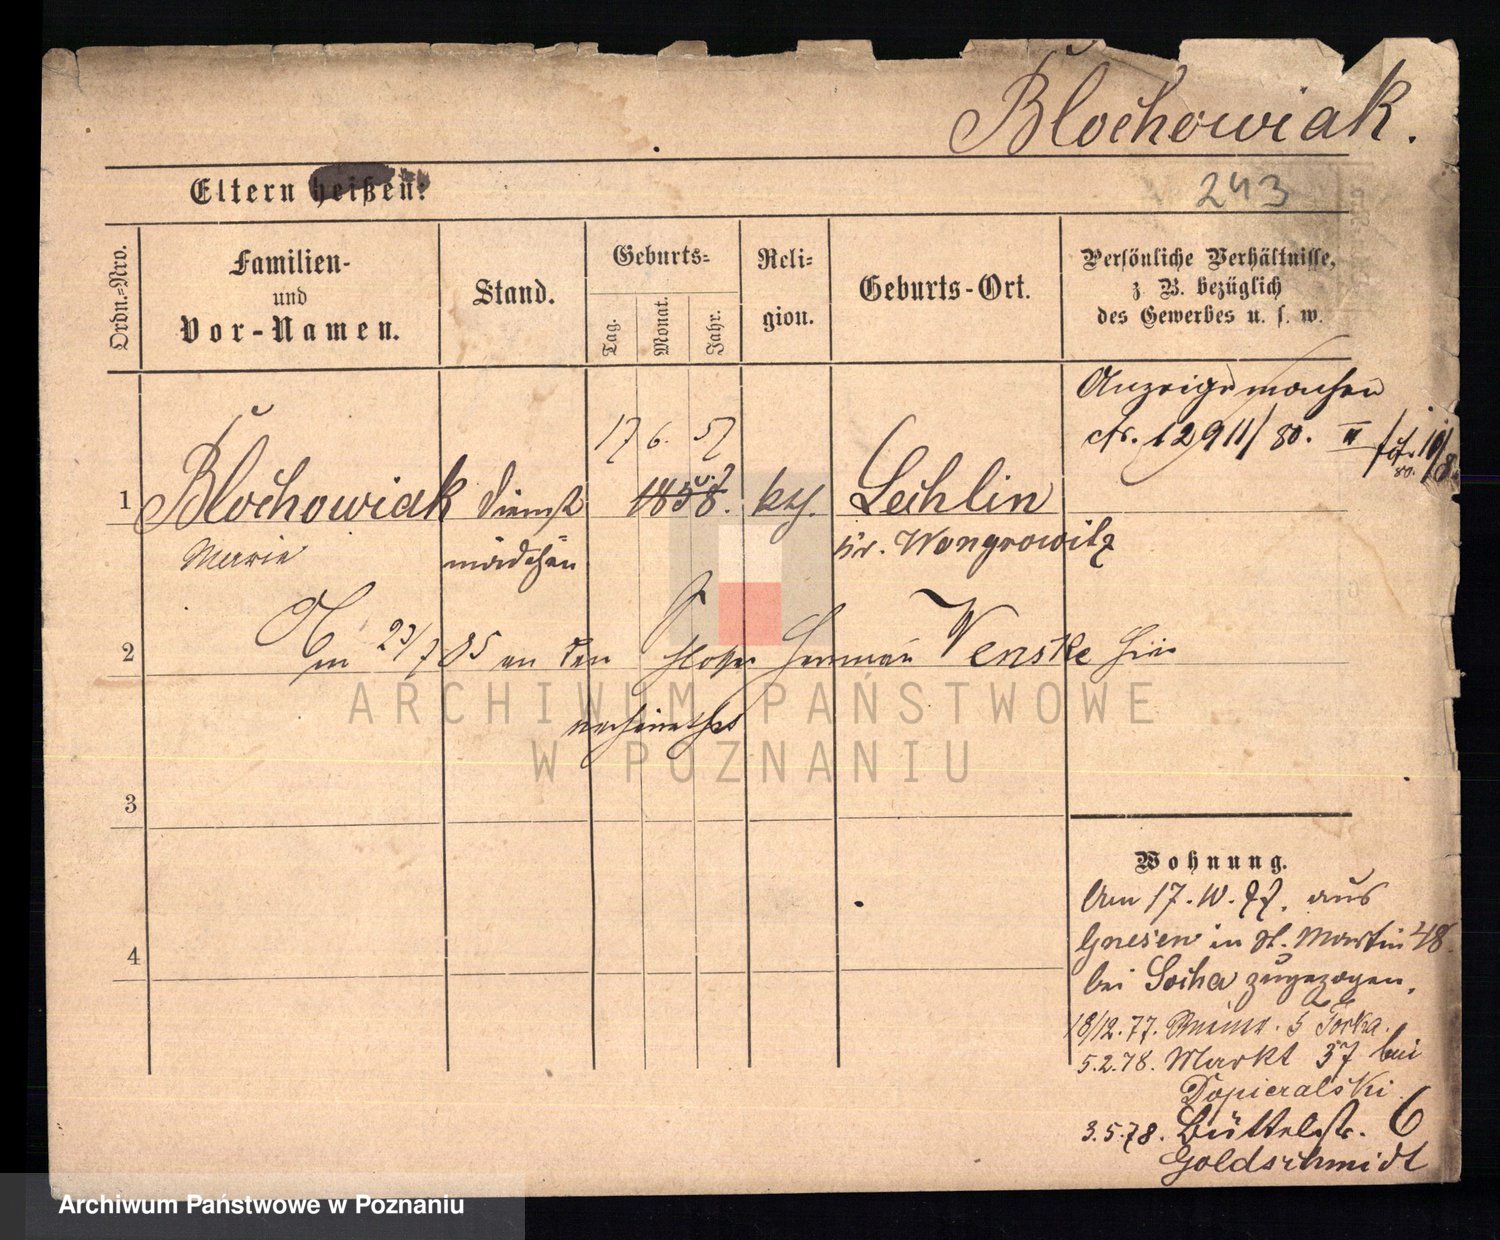 Blochowiak.
Eltern heißen:
243
Ordn.=Nro.
Familien-
und
Vor-Namen.
Stand.
Geburts=
Tag.
Monat.
Jahr.
Reli=
gion.
Geburts-Ort.
Persönliche Verhältnisse,
z. B. bezüglich
des Gewerbes u. s. w.
Anzeige machen
Nr. 12911/80. II
17 6. 57
1 Blochowiak Dienst 1858. kth. Lechlin
Marie mädchen Kr. Wongrowitz
2 Am 23/7 85 an den Herman Venske hier
verheirathet
3
4
Wohnung.
Am 17.10.77. aus
Gnesen in St. Martin 48
bei Socha zugezogen.
18/12.77. 5 Torka.
5.2.78. Markt 37 bei
Dopieralski
3.5.78. Büttelstr. 6
Goldschmidt
ARCHIWUM PAŃSTWOWE
W POZNANIU
Archiwum Państwowe w Poznaniu